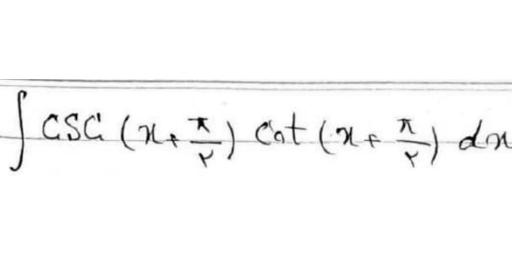 ∫ csc (x + π/۲) cot (x + π/۲) dx